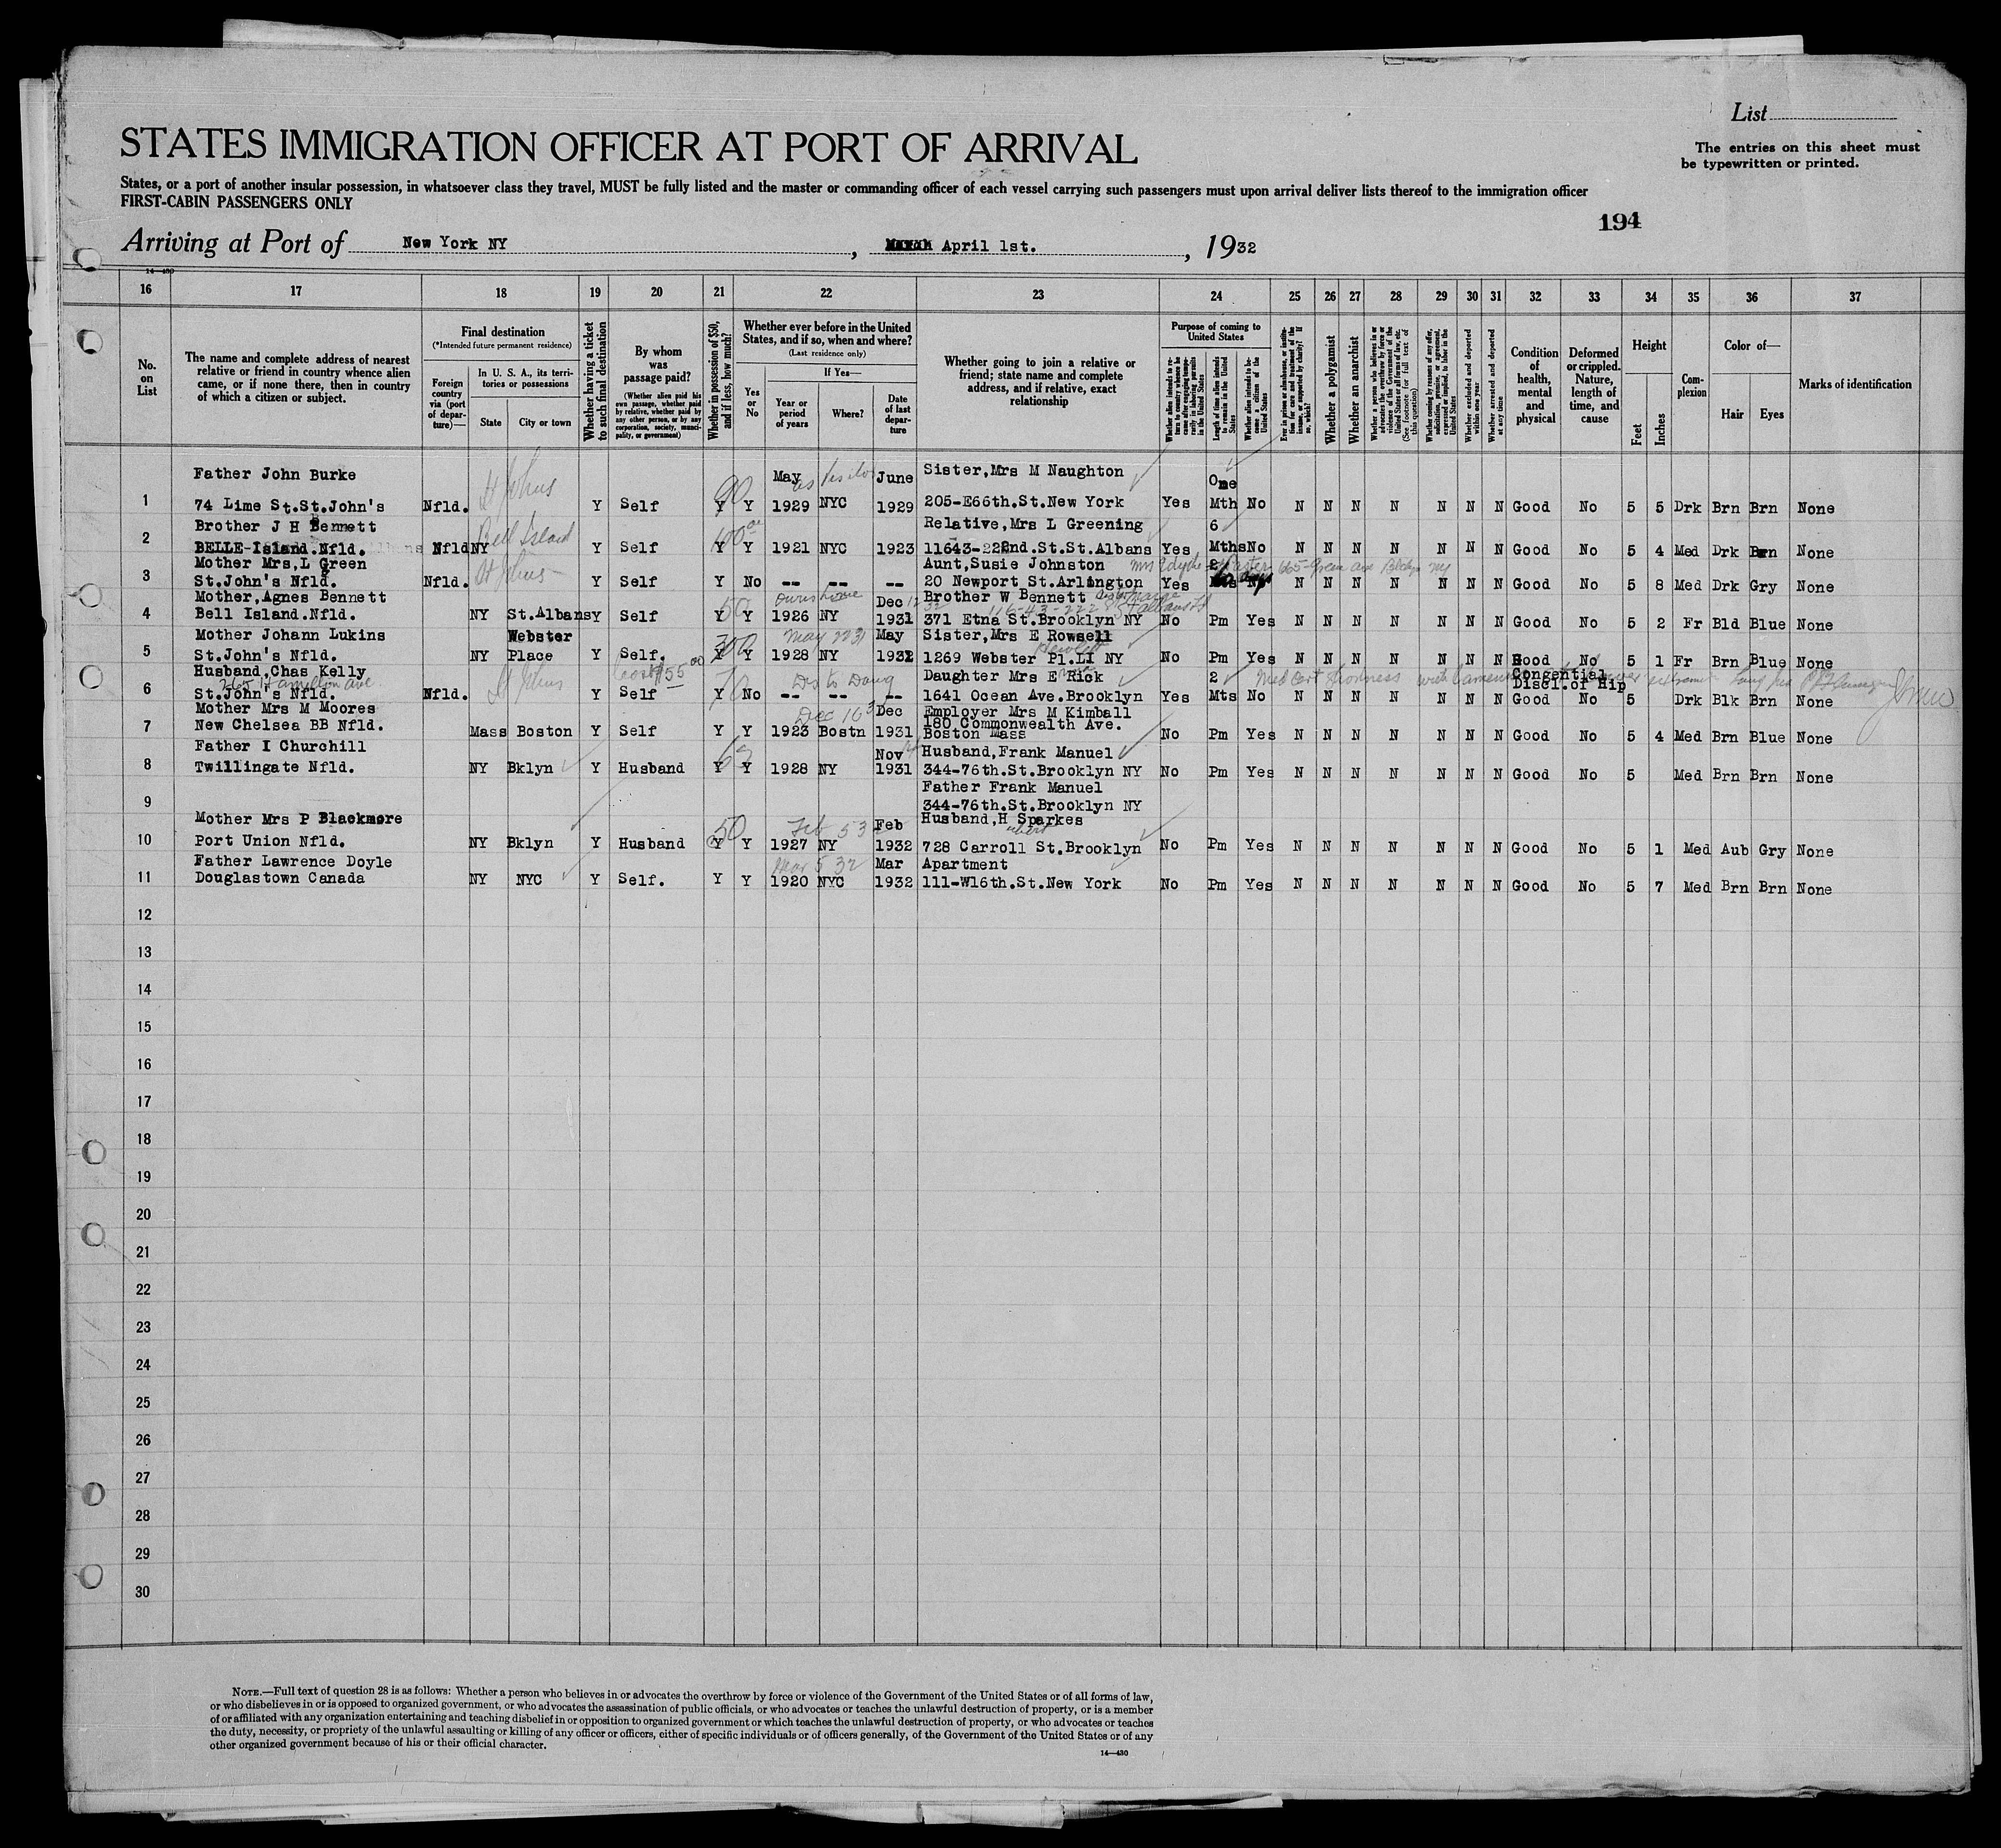 List
STATES IMMIGRATION OFFICER AT PORT OF ARRIVAL
The entries on this sheet must
be typewritten or printed.
States, or a port of another insular possession, in whatsoever class they travel, MUST be fully listed and the master or commanding officer of each vessel carrying such passengers must upon arrival deliver lists thereof to the immigration officer
FIRST-CABIN PASSENGERS ONLY
194
Arriving at Port of New York NY, April 1st., 1932
14—430
16 17 18 19 20 21 22 23 24 25 26 27 28 29 30 31 32 33 34 35 36 37
No. on List
The name and complete address of nearest relative or friend in country whence alien came, or if none there, then in country of which a citizen or subject.
Final destination
(*Intended future permanent residence)
Foreign country via (port of departure)—
In U. S. A., its territories or possessions
State
City or town
Whether having a ticket to such final destination
By whom was passage paid?
(Whether alien paid his own passage, whether paid by relative, whether paid by any other person, or by any corporation, society, municipality, or government)
Whether in possession of $50, and if less, how much?
Whether ever before in the United States, and if so, when and where?
(Last residence only)
Yes or No
If Yes—
Year or period of years
Where?
Date of last departure
Whether going to join a relative or friend; state name and complete address, and if relative, exact relationship
Purpose of coming to United States
Whether alien intends to return to country whence he came after engaging temporarily in laboring pursuits in the United States
Length of time alien intends to remain in the United States
Whether alien intends to become a citizen of the United States
Ever in prison or almshouse, or institution for care and treatment of the insane, or supported by charity? If so, which?
Whether a polygamist
Whether an anarchist
Whether a person who believes in or advocates the overthrow by force or violence of the Government of the United States or all forms of law, etc. (See footnote for full text of this question)
Whether coming by reason of any offer, solicitation, promise, or agreement, expressed or implied, to labor in the United States
Whether excluded and deported within one year
Whether arrested and deported at any time
Condition of health, mental and physical
Deformed or crippled. Nature, length of time, and cause
Height
Feet
Inches
Complexion
Color of—
Hair
Eyes
Marks of identification
Father John Burke St Johns 90 May June Sister,Mrs M Naughton One
1 74 Lime St.St.John's Nfld. Y Self Y Y 1929 NYC 1929 205-E66th.St.New York Yes Mth No N N N N N N N Good No 5 5 Drk Brn Brn None
Brother J H Bennett Bell Island 100 Relative,Mrs L Greening 6
2 BELLE-Island.Nfld. Nfld NY Y Self Y Y 1921 NYC 1923 11643-222nd.St.St.Albans Yes Mths No N N N N N N N Good No 5 4 Med Drk Brn None
Mother Mrs,L Green St Johns Aunt,Susie Johnston 665-Green ave Bklyn NY
3 St.John's Nfld. Nfld. Y Self Y No -- -- -- 20 Newport St.Arlington Yes N N N N N N N Good No 5 8 Med Drk Gry None
Mother,Agnes Bennett 50 Dec Brother W Bennett 116-43-222 St St albans
4 Bell Island.Nfld. NY St.Albans Y Self Y Y 1926 NY 1931 371 Etna St.Brooklyn NY No Pm Yes N N N N N N N Good No 5 2 Fr Bld Blue None
Mother Johann Lukins Webster 300 May 22 31 May Sister,Mrs E Rowsell
5 St.John's Nfld. NY Place Y Self. Y Y 1928 NY 1931 1269 Webster Pl.LI NY No Pm Yes N N N N N N N Good No 5 1 Fr Brn Blue None
Husband,Chas Kelly 265 Hamilton ave St Johns $55 70 Daughter Mrs E Rick 2 Med Cert Congential Discl.of Hip
6 St.John's Nfld. Nfld. Y Self Y No -- -- -- 1641 Ocean Ave.Brooklyn Yes Mts No N N N N N N N Good No 5 Drk Blk Brn None
Mother Mrs M Moores Dec 16 Dec Employer Mrs M Kimball
180 Commonwealth Ave.
7 New Chelsea BB Nfld. Mass Boston Y Self Y Y 1923 Bostn 1931 Boston Mass No Pm Yes N N N N N N N Good No 5 4 Med Brn Blue None
Father I Churchill Nov Husband,Frank Manuel
8 Twillingate Nfld. NY Bklyn Y Husband Y Y 1928 NY 1931 344-76th.St.Brooklyn NY No Pm Yes N N N N N N N Good No 5 Med Brn Brn None
Father Frank Manuel
9 344-76th.St.Brooklyn NY
Mother Mrs P Blackmore 50 Feb 5 32 Feb Husband,H Sparkes
10 Port Union Nfld. NY Bklyn Y Husband Y Y 1927 NY 1932 728 Carroll St.Brooklyn No Pm Yes N N N N N N N Good No 5 1 Med Aub Gry None
Father Lawrence Doyle Mar 5 32 Mar Apartment
11 Douglastown Canada NY NYC Y Self. Y Y 1920 NYC 1932 111-W16th.St.New York No Pm Yes N N N N N N N Good No 5 7 Med Brn Brn None
12
13
14
15
16
17
18
19
20
21
22
23
24
25
26
27
28
29
30
NOTE.—Full text of question 28 is as follows: Whether a person who believes in or advocates the overthrow by force or violence of the Government of the United States or of all forms of law,
or who disbelieves in or is opposed to organized government, or who advocates the assassination of public officials, or who advocates or teaches the unlawful destruction of property, or is a member
of or affiliated with any organization entertaining and teaching disbelief in or opposition to organized government or which teaches the unlawful destruction of property, or who advocates or teaches
the duty, necessity, or propriety of the unlawful assaulting or killing of any officer or officers, either of specific individuals or of officers generally, of the Government of the United States or of any
other organized government because of his or their official character.
14—430